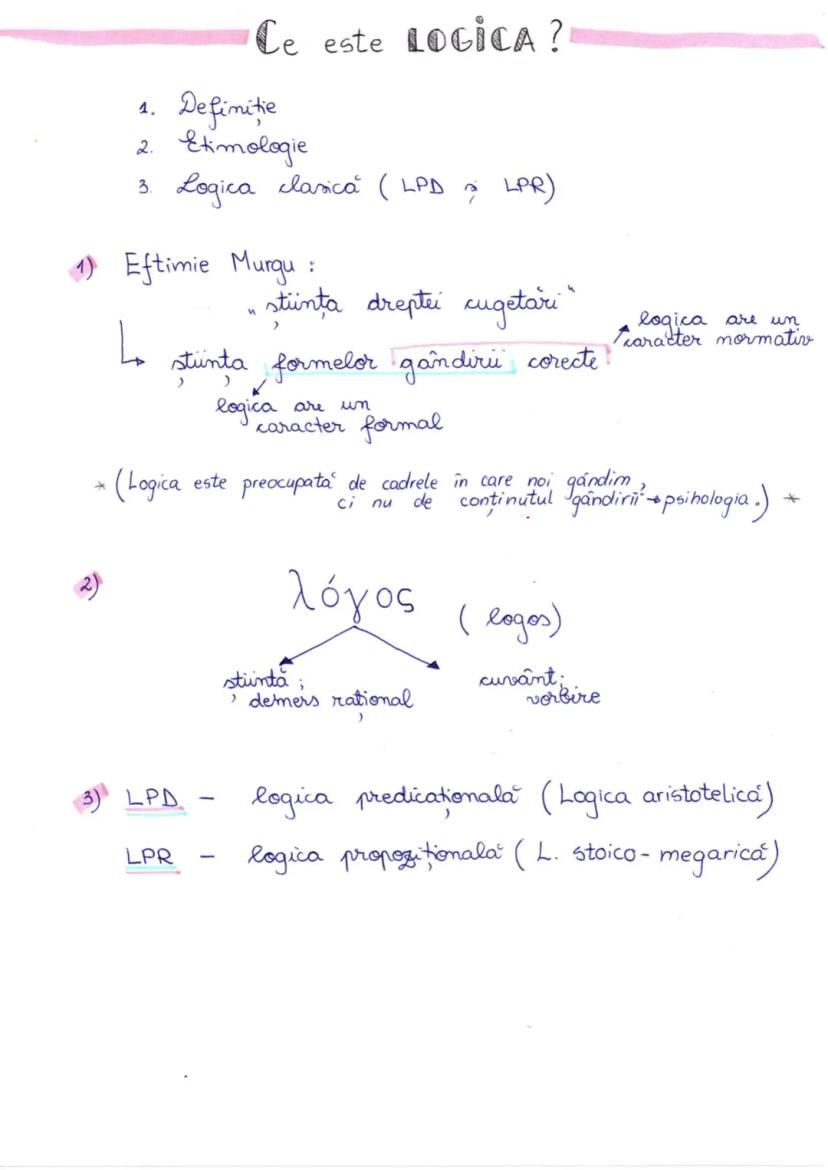 Ce este LOGICA ?
1. Definiție
2. Etimologie
3. Logica clasică ( LPD și LPR)
1) Eftimie Murgu :
„ știința dreptei cugetări "
logica are un
caracter normativ
știința formelor gândirii corecte
logica are un
caracter formal
* (Logica este preocupată de cadrele în care noi gândim ,
ci nu de conținutul gândirii → psihologia.) *
2)
λόγος ( logos)
știință ;
demers rațional
cuvânt;
vorbire
3) LPD - logica predicațională (Logica aristotelică)
LPR - logica propozițională ( L. stoico - megarică)